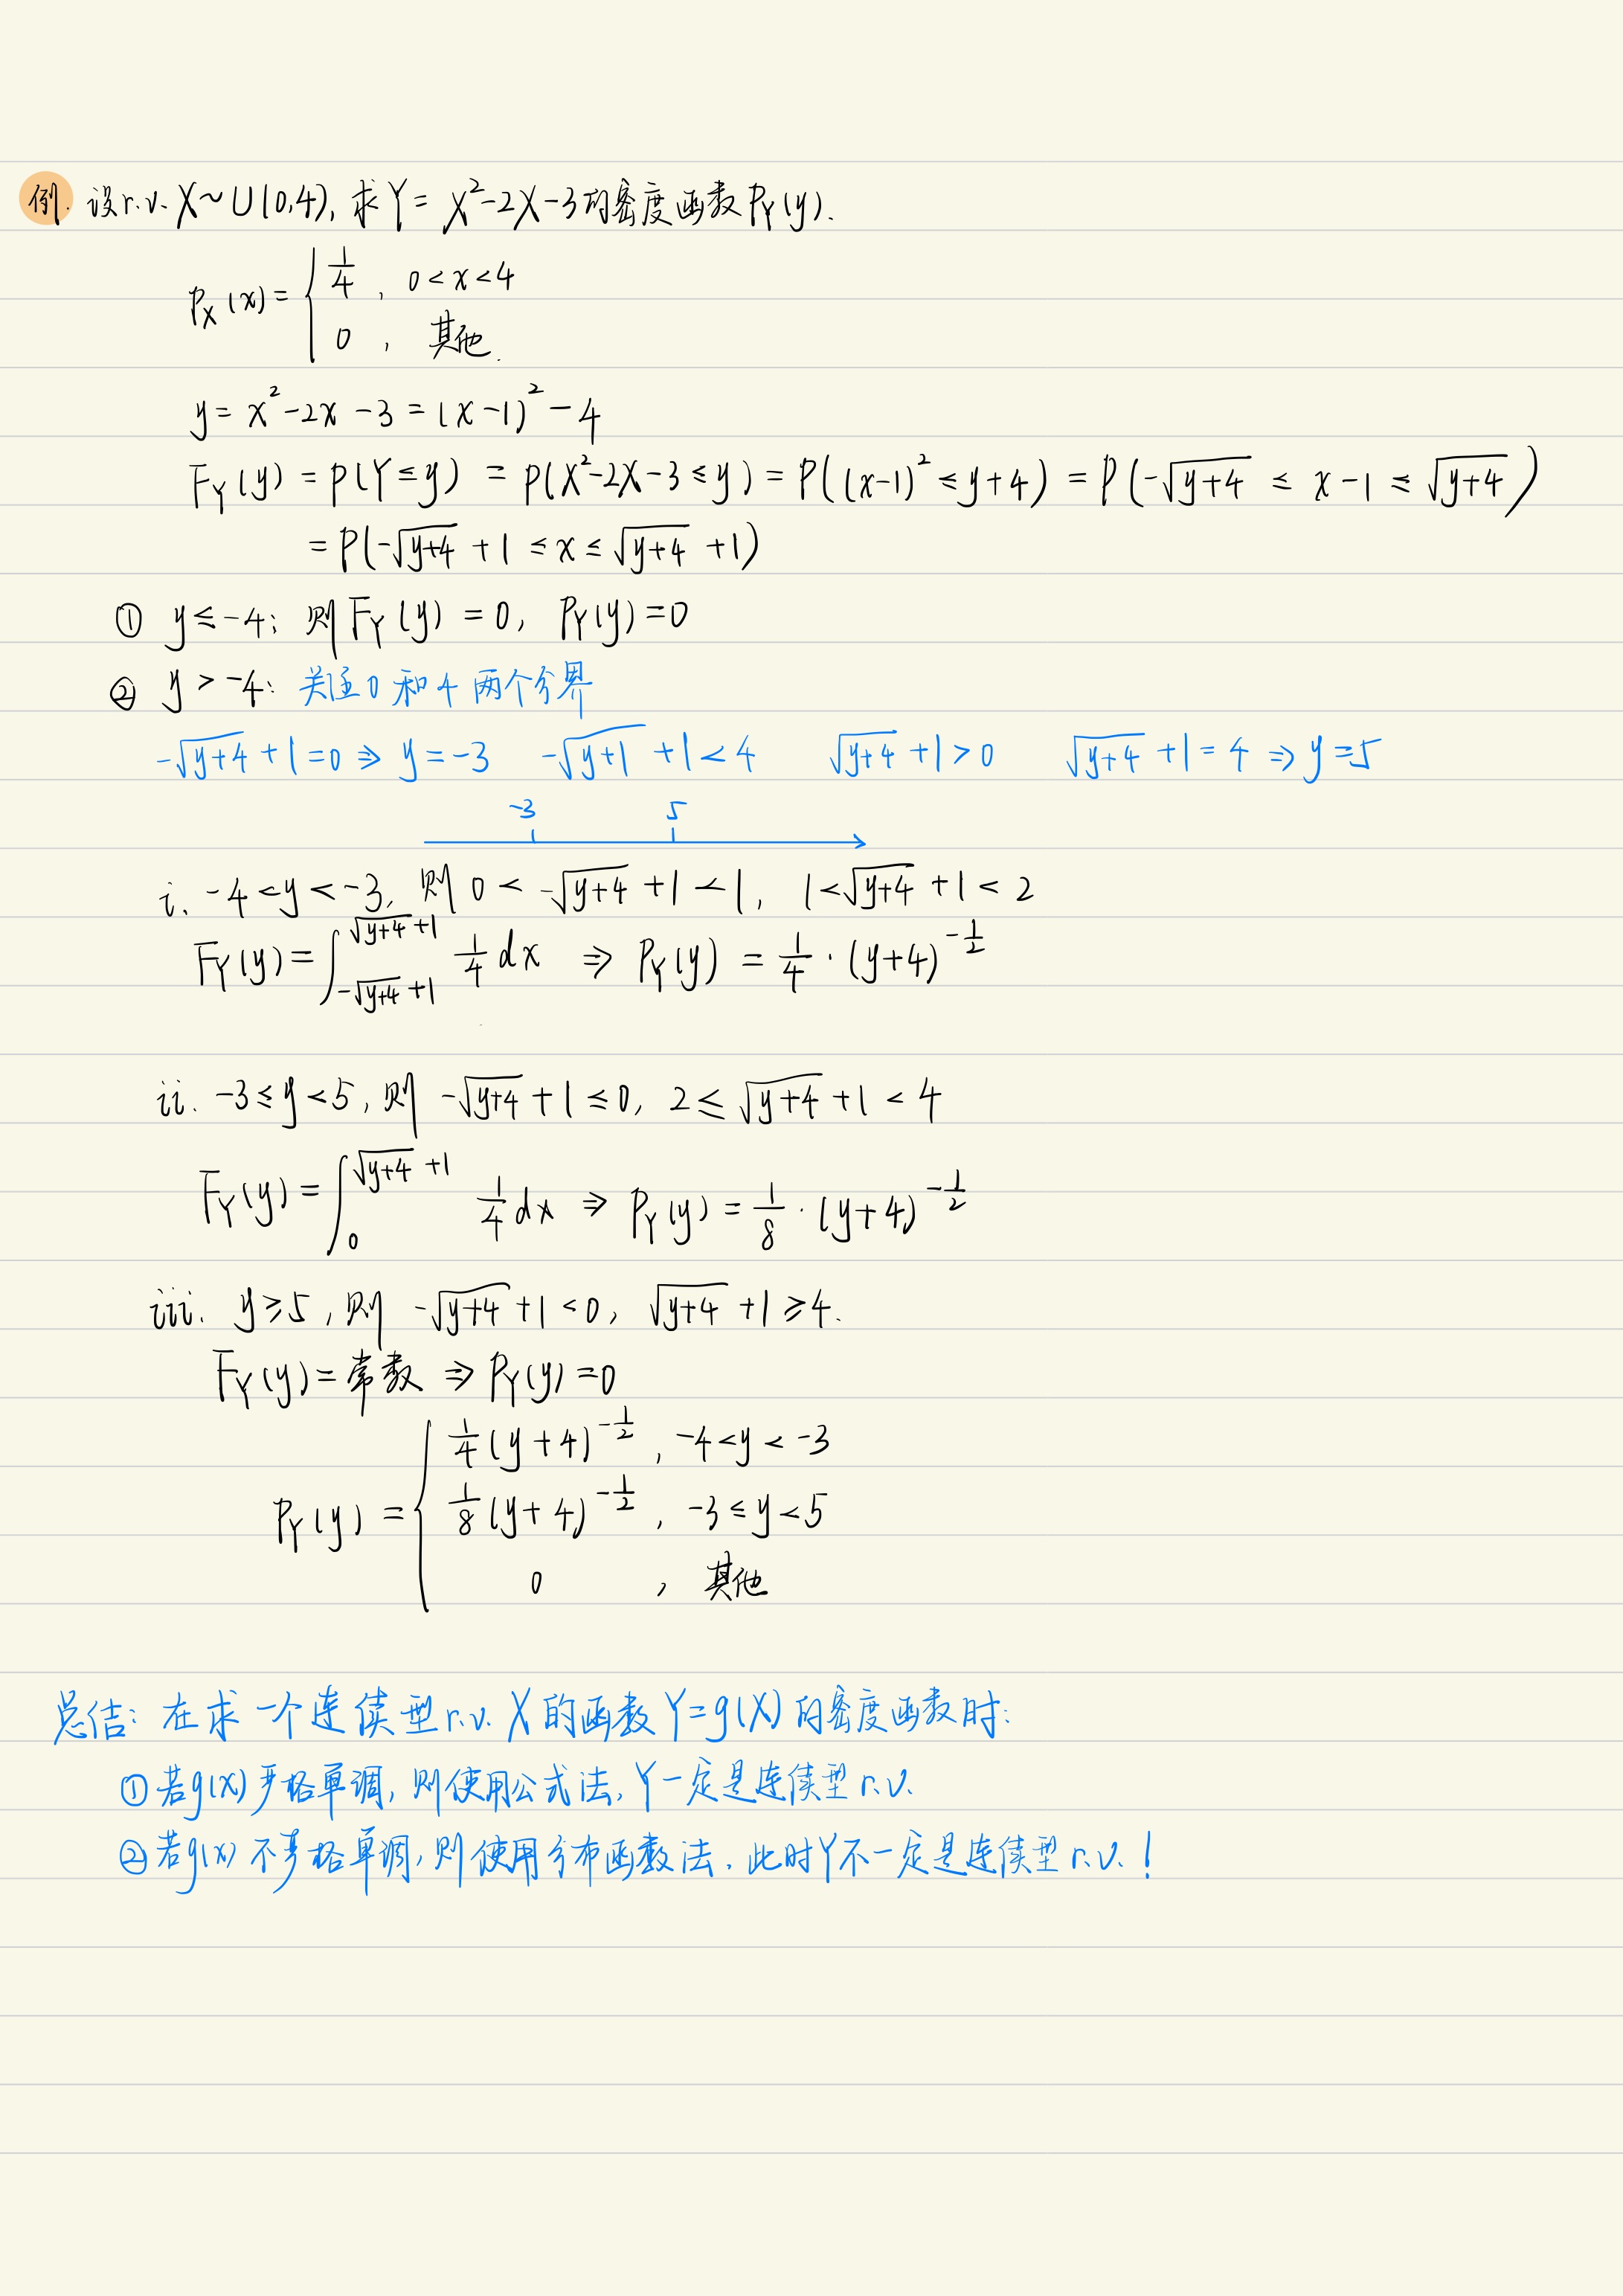 例. 设r.v. X~U(0,4), 求Y= X²-2X-3的密度函数P_Y(y).
P_X(x)= { 1/4 , 0<x<4
0 , 其他.
y= x²-2x-3=(x-1)²-4
F_Y(y) = P(Y≤y) = P(X²-2X-3≤y) = P((x-1)²≤y+4) = P(-√(y+4) ≤ x-1 ≤ √(y+4))
= P(-√(y+4) +1 ≤ x ≤ √(y+4) +1)
① y≤-4: 则F_Y(y) = 0, P_Y(y)=0
② y>-4: 关注0和4两个分界
-√(y+4) +1=0 ⇒ y=-3 -√(y+1) +1<4 √(y+4) +1>0 √(y+4) +1=4 ⇒ y=5
-3 5
i. -4<y<-3, 则 0< -√(y+4) +1<1, 1<√(y+4) +1<2
F_Y(y)=∫_{-√(y+4) +1}^{√(y+4) +1} 1/4 dx ⇒ P_Y(y) = 1/4 · (y+4)^{-1/2}
ii. -3≤y<5, 则 -√(y+4) +1≤0, 2≤√(y+4) +1<4
F_Y(y)=∫_0^{√(y+4) +1} 1/4 dx ⇒ P_Y(y) = 1/8 · (y+4)^{-1/2}
iii. y≥5, 则 -√(y+4) +1<0, √(y+4) +1≥4.
F_Y(y)=常数 ⇒ P_Y(y)=0
P_Y(y) = { 1/4 (y+4)^{-1/2} , -4<y<-3
1/8 (y+4)^{-1/2} , -3≤y<5
0 , 其他
总结: 在求一个连续型r.v. X的函数Y=g(X)的密度函数时:
①若g(x)严格单调, 则使用公式法, Y一定是连续型r.v.
②若g(x)不严格单调, 则使用分布函数法, 此时Y不一定是连续型r.v.!